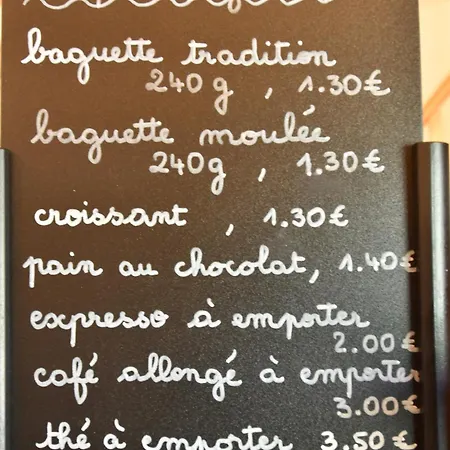 baguette tradition
240 g , 1.30€
baguette moulée
240g , 1.30€
croissant , 1.30€
pain au chocolat, 1.40€
expresso à emporter
2.00€
café allongé à emporter
3.00€
thé à emporter 3.50€